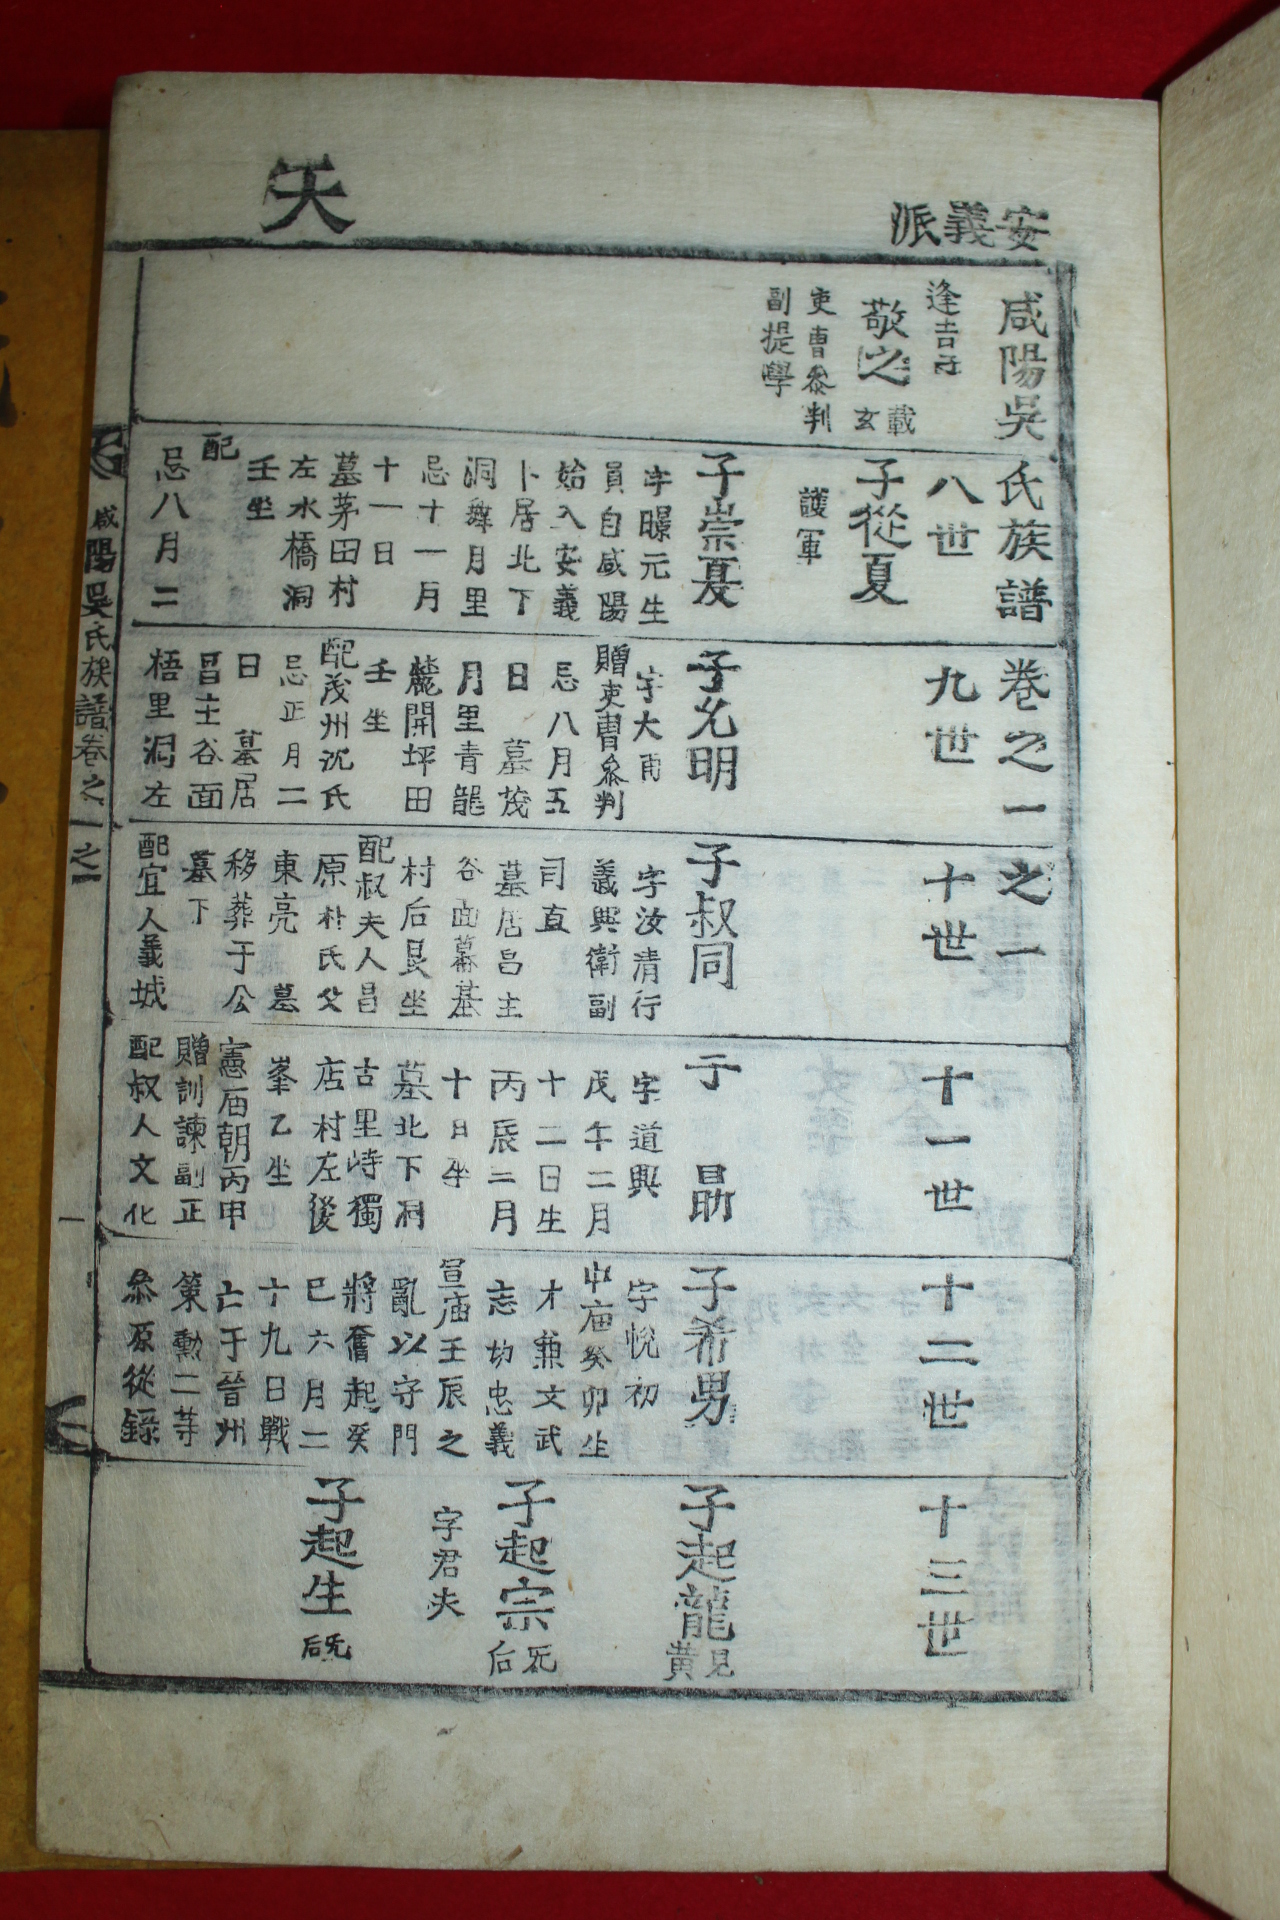 天
安義派
咸陽吳氏族譜卷之一之一
八世
九世
十世
十一世
十二世
十三世
逢吉子
敬之
載玄
吏曹參判
副提學
子從夏
護軍
子崇夏
字曝元生
員自咸陽
始入安義
卜居北下
洞舞月里
忌十一月
十一日
墓茅田村
左水橋洞
壬坐
配
忌八月二
子允明
字大甫
贈吏曹參判
忌八月五
日 墓茂
月里青龍
麓開坪田
壬坐
配茂州沈氏
忌正月二
日 墓居
昌主谷面
梧里洞左
子叔同
字汝清行
義興衛副
司直
墓居昌主
谷面幕基
村后艮坐
配叔夫人昌
原朴氏父
東亮 墓
移葬于公
墓下
配宜人義城
子勗
字道興
戊午二月
十二日生
丙辰二月
十日卒
墓北下洞
古里峙獨
店村左後
峯乙坐
憲庙朝丙甲
贈訓諫副正
配叔人文化
子希男
字悅初
中庙癸卯生
才兼文武
志切忠義
宣庙壬辰之
亂以守門
將奮起癸
巳六月二
十九日戰
亡于晉州
策勳二等
參原從錄
子起龍
見黃
子起宗
无后
字君夫
子起生
无后
咸陽吳氏族譜卷之一之一
一